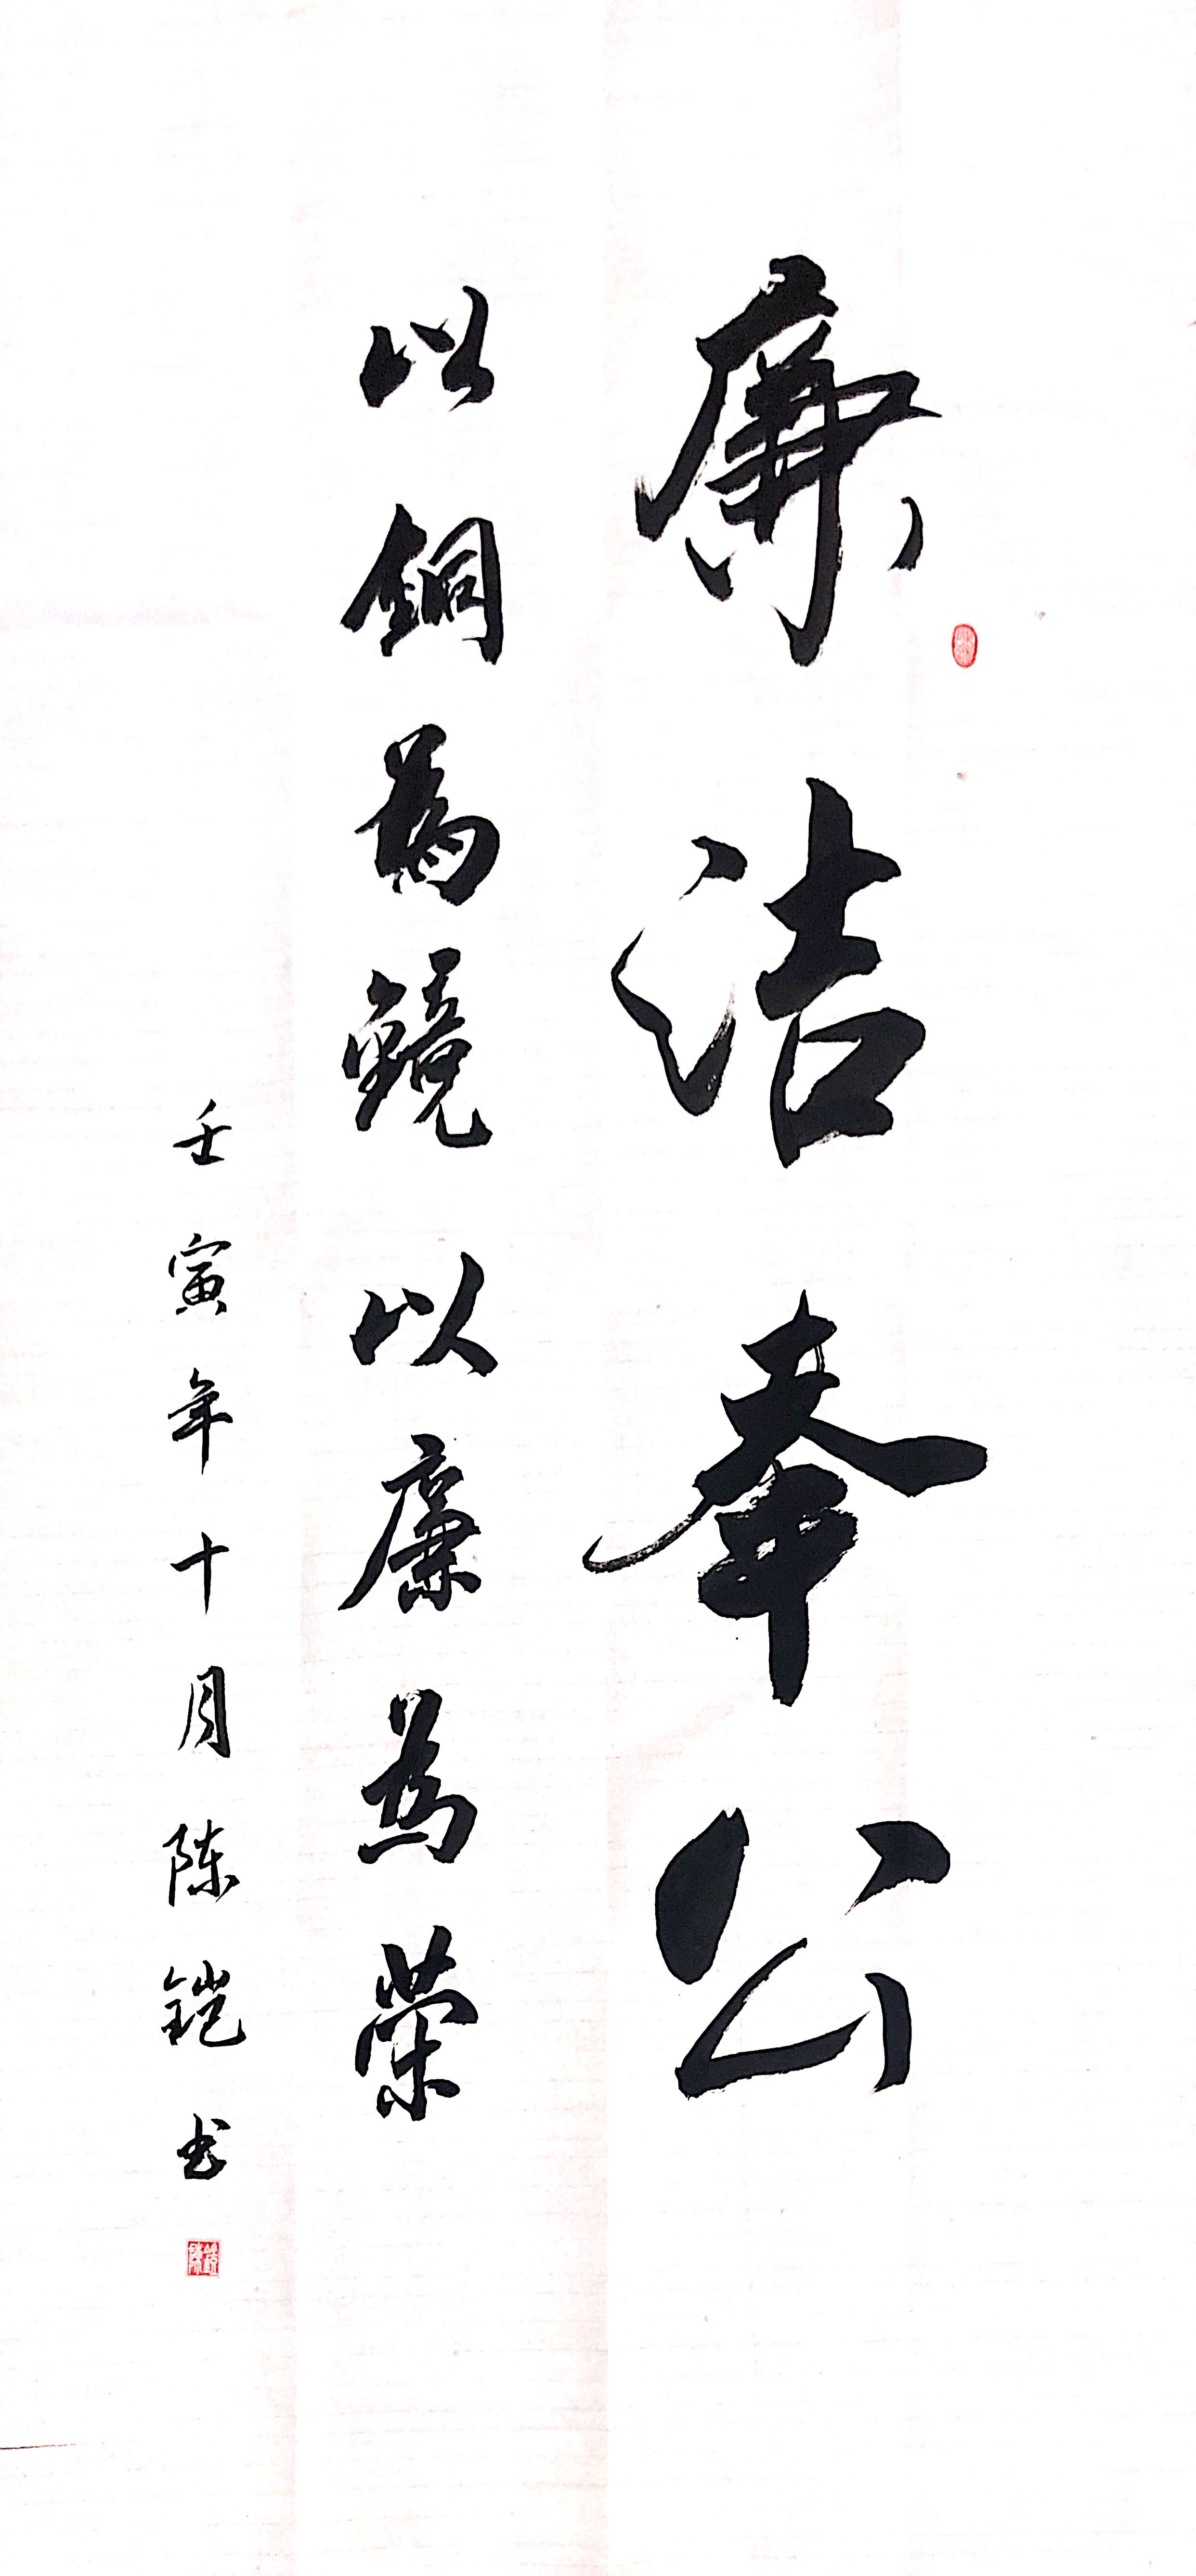 廉洁奉公
以銅為鏡以廉為荣
壬寅年十月陈铠书